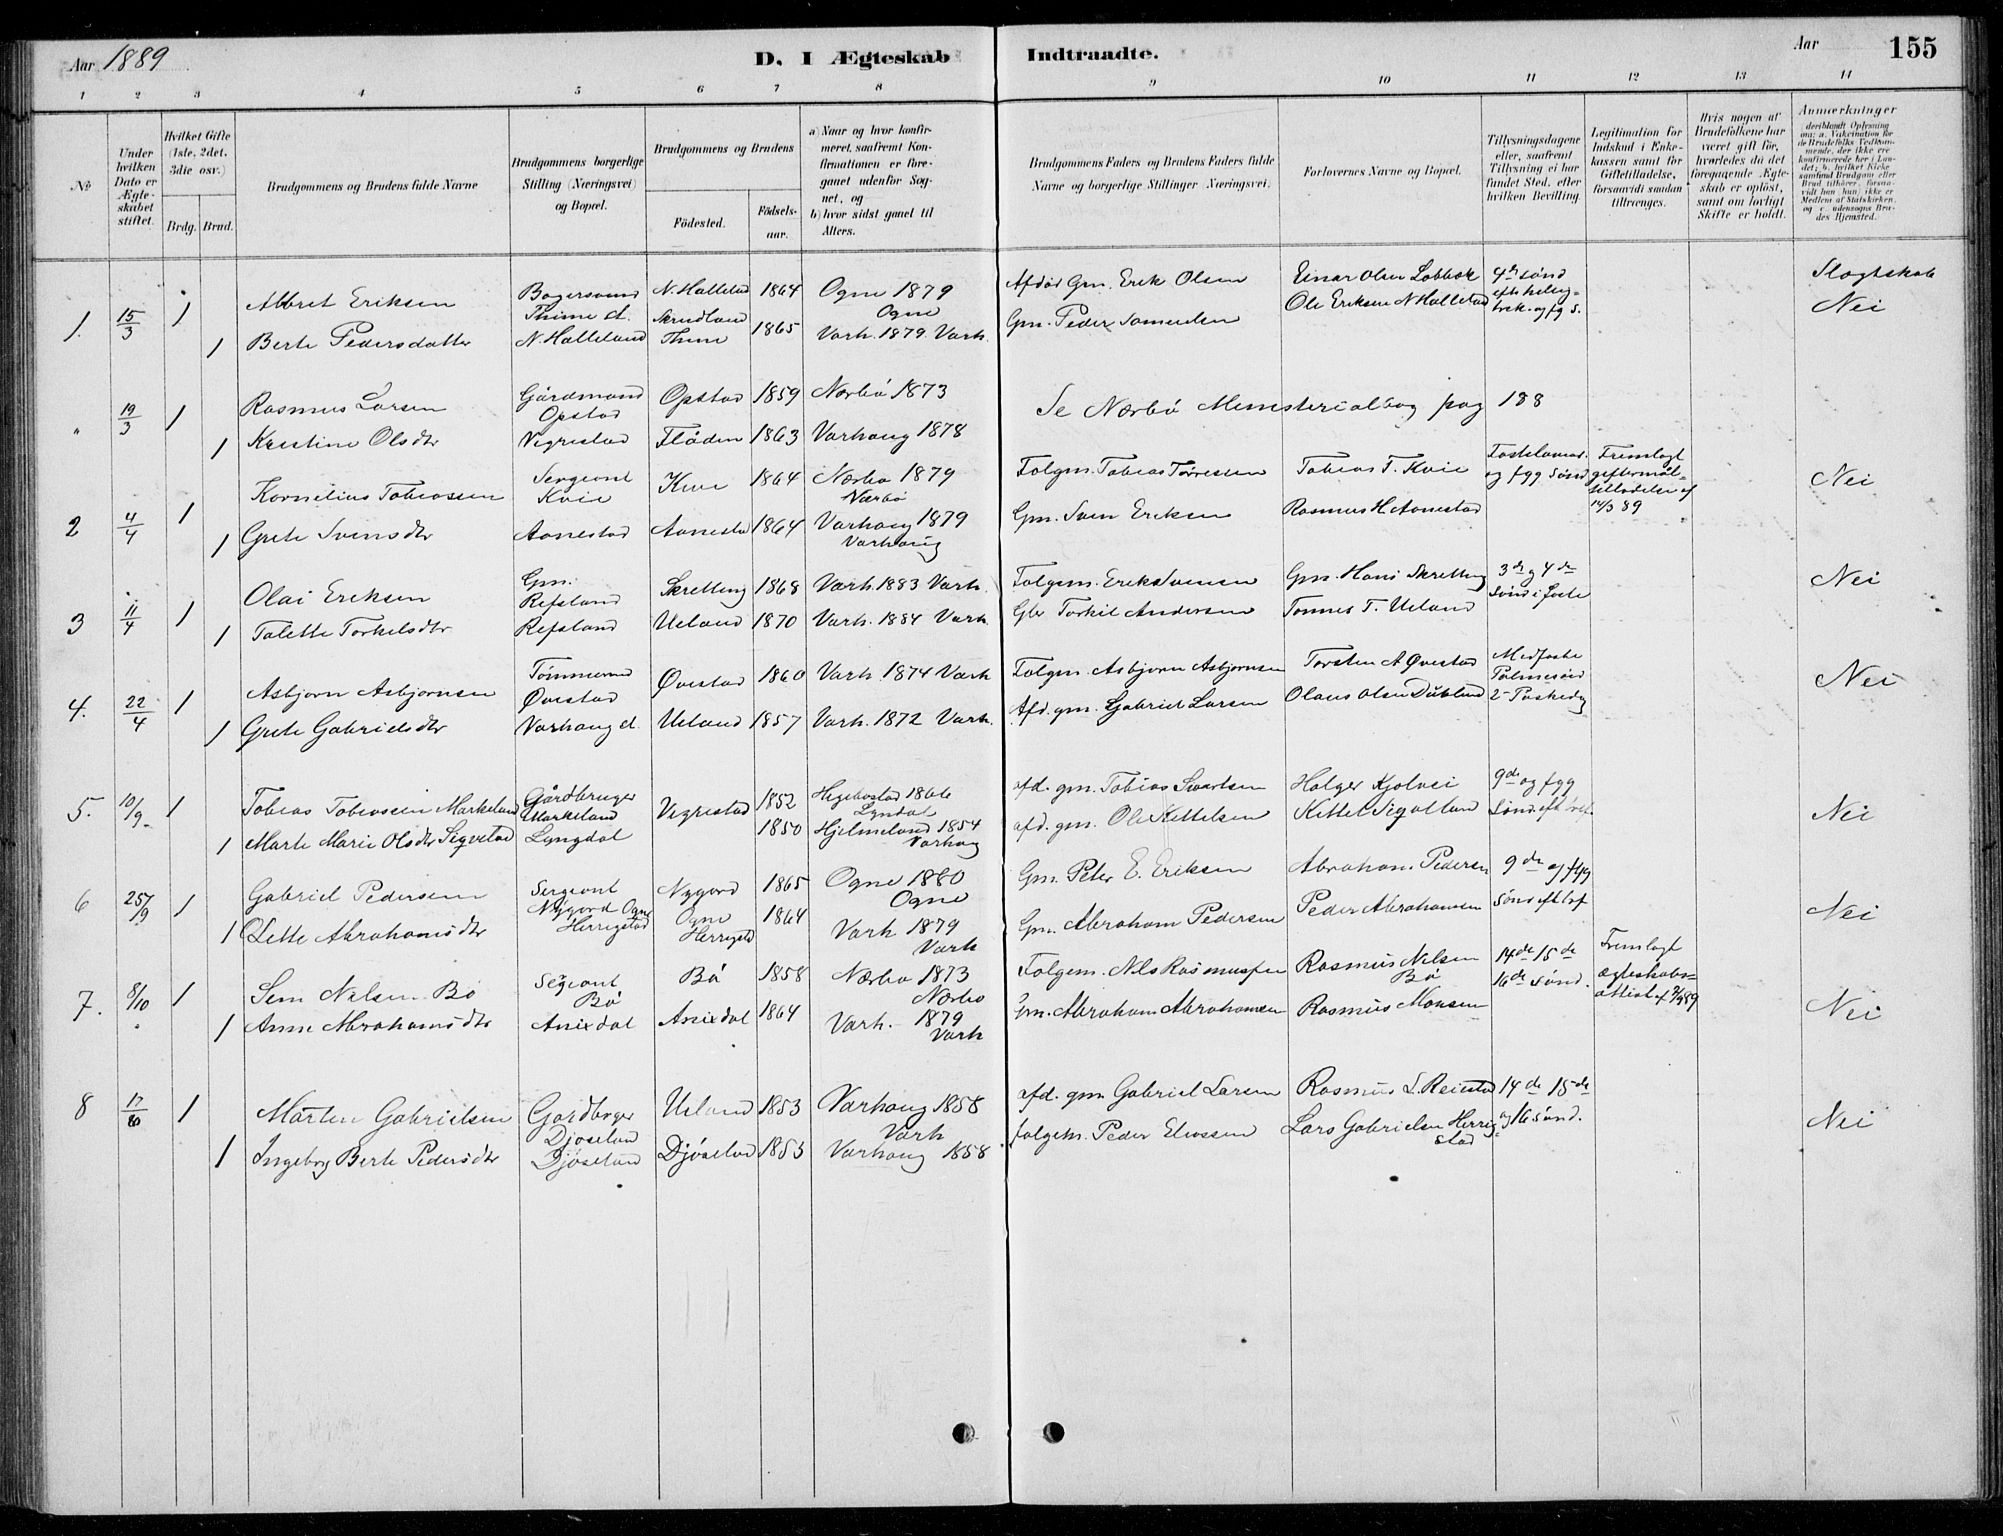 Aar 1889
D. I Ægteskab Indtraadte.
Aar
155
1 2 3 4 5 6 7 8 9 10 11 12 13 14
No
Under hvilken Dato er Ægteskabet stiftet.
Hvilket Gifte (1ste, 2det, 3die osv.)
Brdg. Brud.
Brudgommens og Brudens fulde Navne
Brudgommens borgerlige Stilling (Næringsvei) og Bopæl.
Brudgommens og Brudens
Fødested.
Fødsels-aar.
a) Naar og hvor konfirmeret, saafremt Konfirmationen er foregaaet udenfor Sognet, og
b) hvor sidst gaaet til Alters.
Brudgommens Faders og Brudens Faders fulde Navne og borgerlige Stillinger Næringsvei.
Forlovernes Navne og Bopæl.
Tillysningsdagene eller, saafremt Tillysning ei har fundet Sted, efter hvilken Bevilling.
Legitimation for Indskud i Enkekassen samt for Giftetilladelse, forsaavidt saadan tiltrænges.
Hvis nogen af Brudefolkene har været gift før, hvorledes da det foregaaende Ægteskab er opløst, samt om lovligt Skifte er holdt.
Anmærkninger deriblandt Oplysning om: a. Vakcination for de Brudefolks Vedkommende, der ikke ere konfirmerede her i Landet; b. hvilket Kirkesamfund Brudgom eller Brud tilhører, forsaavidt han (hun) ikke er Medlem af Statskirken, og c. udensogns Brudes Hjemsted.
1. 15/3 1 Albret Eriksen Thime d. N. Hølleland 1864 Ogne 1879 Ogne Afdød Gm. Erik Olsen Einar Olsen 4de sønd Slægtskab
1 Berte Pedersdatter N. Hølleland Thime 1865 Varh. 1879. Varh. Gm. Peder Samuelsen Ole Eriksen N Hølleland Nei
" 19/3 1 Rasmus Larsen Gårdmand Opstad Opstad 1859 Nærbø 1873 Se Nærbø Ministerialbog pag 188
1 Kristine Olsdtr Vigrestad Fløden 1863 Varhaug 1878
2 4/4 1 Kornelius Tobiassen Sergeant Kvie Kvie 1864 Nærbø 1879 Nærbø Folgm. Tobias Tørresen Tobias T. Kvie og fgg sønd Fremlagt giftermål-tilladelse af 14/3 89 Nei
1 Grete Svensdtr Aanestad Aanestad 1864 Varhaug 1879 Varhaug Gm. Sven Eriksen Rasmus H Aanestad
3 11/4 1 Olai Eriksen Gm. Refsland Skretting 1868 Varh. 1883 Varh. Folgem. Erik Svensen Gm. Hans Skretting 3de og 4de sønd i faste Nei
1 Talette Torkelsdtr Refsland Ueland 1870 Varh. 1884 Varh. Gbr Torkil Andersen Tønnes T. Ueland
4. 22/4 1 Asbjørn Asbjørnsen Tømmermd Øvestad Øvestad 1860 Varh 1874 Varh Folgm. Asbjørn Asbjørnsen Torsten A Øvestad Midfaste Palmesønd 2 Paskedag Nei
1 Grete Gabrielsdtr Varhaug d. Ueland 1857 Varh. 1872 Varh. Afd. gm. Gabriel Larsen Olaus Olsen Dubland
5. 10/9 1 Tobias Tobiassen Markeland Gårdbruger Markeland 1852 1866 Lyndal afd. gm. Tobias Holger 9de og fgg Nei
1 Marte Marie Olsdtr Lyngdal Vigrestad 1850 Hjelmeland 1854 Varhaug afd. gm. Ole Kittelsen Kittel
6 25/9 1 Gabriel Pedersen Sergeant Nygord Ogne Nygord Ogne 1865 Ogne 1880 Ogne Gm. Peter E. Eriksen Abraham Pedersen 9de og fgg Nei
1 Abrahamsdtr Herrigstad Herrigstd 1864 Varh 1879 Varh Gm. Abraham Pedersen Peder Abrahamsen
7. 8/10 1 Sem Nilsen Bø Segeant Bø Bø 1858 Nærbø 1873 Nærbø Folgem. Nils Rasmussen Rasmus Nilsen Bø 14de 15de 16de sønd. Fremlagt ægteskabs-attest Nei
1 Anne Abrahamsdtr Anixdal Anixdal 1864 Varh. 1879 Varh Gm. Abraham Abrahamsen Rasmus Monsen
8 17/10 1 Mårten Gabrielsen Gardbrger Djøseland Ueland 1853 Varhaug 1858 Varh afd. gm Gabriel Larsen Rasmus L. Reiestad 14de 15de og 16 sønd. Nei
1 Ingeborg Berte Pedersdtr Djøseland Djøseland 1853 Varhaug 1858 folgem. Peder Eliassen Lars Gabrielsen Herrigstad